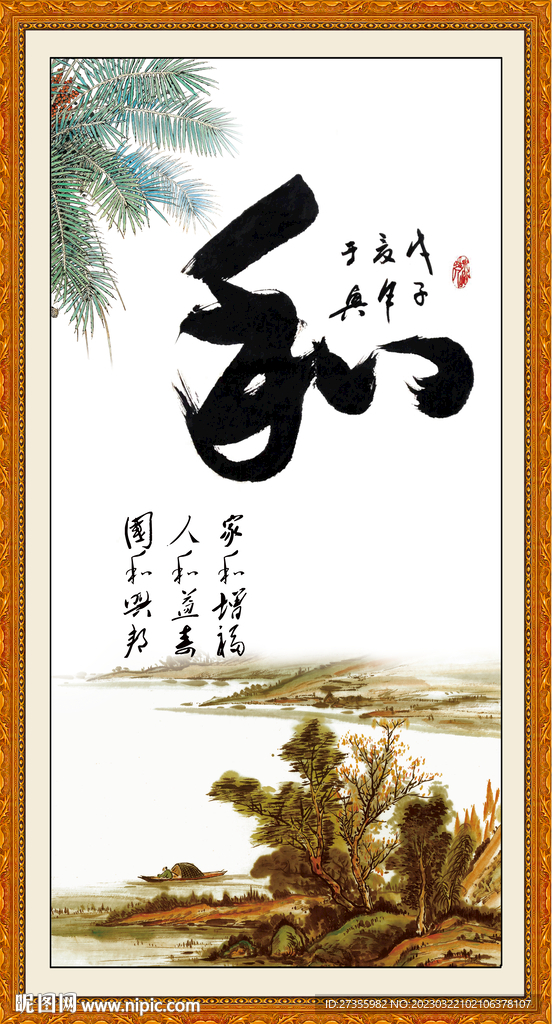 和
戊子
夏年
于奥
家和增福
人和益寿
國和興邦
昵图网 www.nipic.com
ID:27355982 NO:20230322102106378107